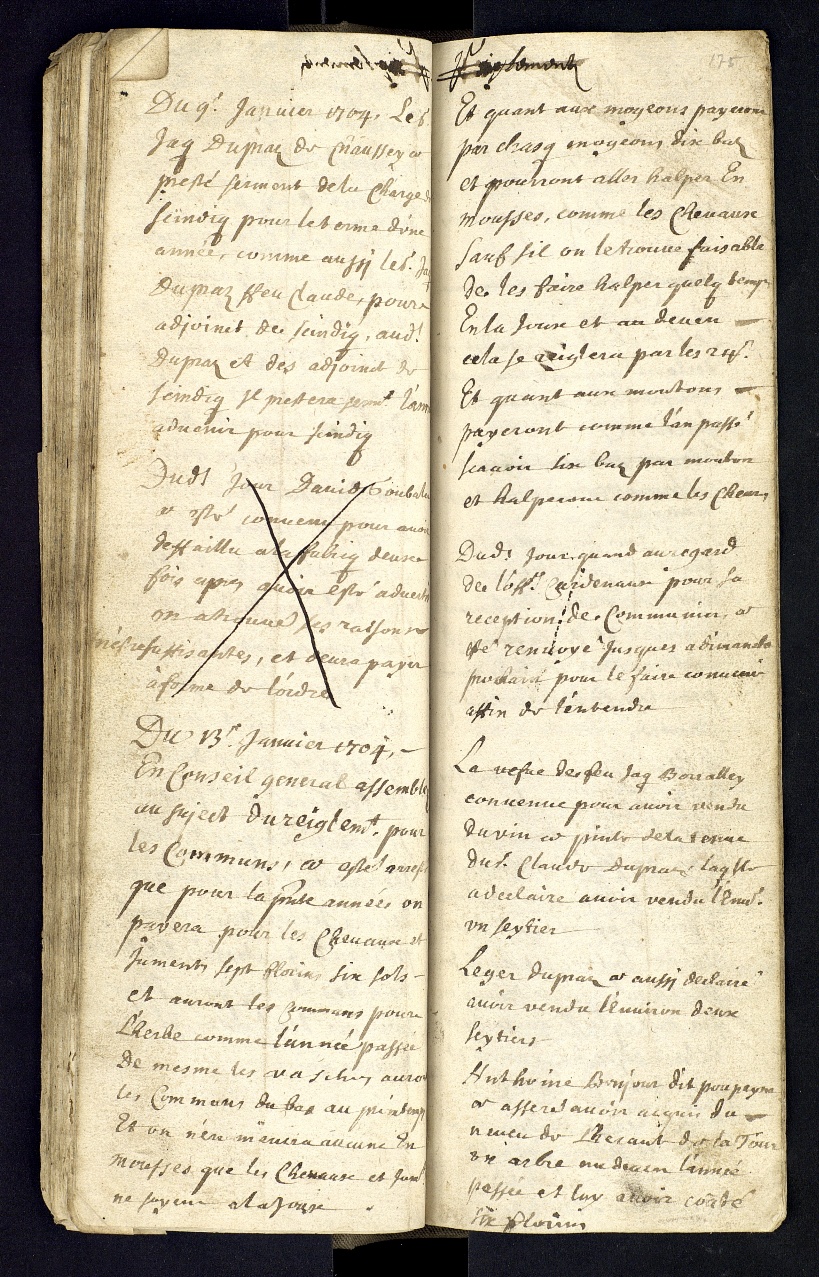 Du 9e. Janvier 1704, Le S
Jaq Dupraz de Chaussey a
presté serment de la Charge de
seindiq pour le terme d'une
année, comme aussi le S. Jaq
Dupraz ffeu Claude, pour
adjoinct de seindiq, aud.t
Dupraz et des adjoinct de
seindiq Il prestera serm.t l'année
advenir pour seindiq
Dud.t Jour David
a esté convenu pour avoir
deffailli a la fabriq deux
fois apres avoir esté adverti
on a trouvé ses raisons
suffisantes, et devra payer
à forme de l'ordre
Du 13e. Janvier 1704,
En Conseil general assemblé
au suject du reiglem.t pour
les Communs, a esté arresté
que pour la pnte année on
payera pour les Chevaux et
Juments sept florins six sols
et auront les Communs pour
L'herbe comme l'année passée
De mesme les vaches auront
les Communs du bas au printemps
Et on n'en menera aucune En
mousses que les Chevaux et Jum.
ne soyent a la Joux
175
Reiglement
Et quant aux mogeons payeront
par chasq mogeons dix batz
et pourront aller halper En
mousses, comme les Chevaux
Sauf sil on le trouve faisable
de les faire halper quelq temps
En la Joux et au devent
cela se reiglera par les 24.
Et quant aux moutons
payeront comme l'an passé
scavoir six batz par mouton
et halperont comme les Chevaux
Dud.t Jour quand au regard
de Cardenaux pour sa
reception de Communier, a
esté renvoyé Jusques a dimanche
prochain pour le faire convenir
affin de l'entendre
La vefve de feu Jaq
convenue pour avoir vendu
du vin a pinte
du S. Claude Dupraz laqlle
a declaire avoir vendu l'Env.
un seytier
Leger Dupraz a aussi declairé
avoir vendu l'environ deux
seytiers
Anthoine Bonjour dit
a asseré avoir acquis du
neveu de de la Tour
un arbre l'année
passée et luy avoir couté
six florins